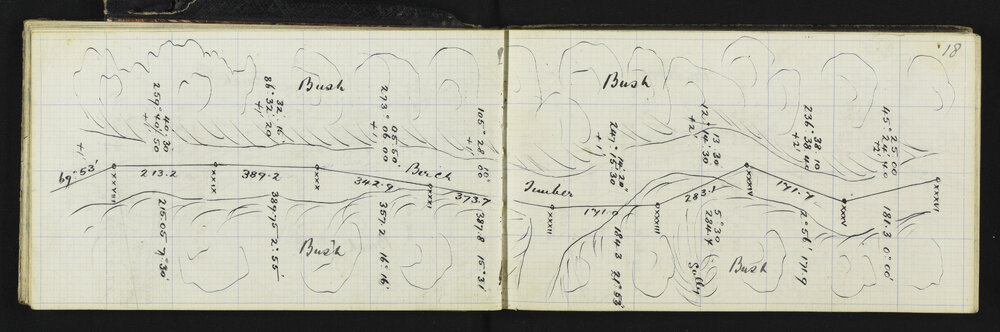 18
Bush
Bush
259° 40' 30
40' 50
+1'
32' 16
86° 32' 20
+1'
05' 50
273° 06' 00
+1'
105° 28' 00
+1'
14' 20"
247° 15' 30
+1
13 30
12° 14' 30
+2'
38 10
236° 38 40
+2'
25' 00
45° 24' 40
+2'
69° 53'
+1'
213.2
389.2
342.9
Berch
373.7
Timber
171.
283.1
171.4
XXVIII
XXIX
XXX
XXXI
XXXII
XXXIII
XXXIV
XXXV
XXXVI
215.05 7° 30'
389.75 2° 55'
357.2 16° 16'
387.8 15° 31'
184.3 21° 53'
5° 30
284.4
2° 56' 171.9
181.3 0° 00'
Bush
Gully
Bush